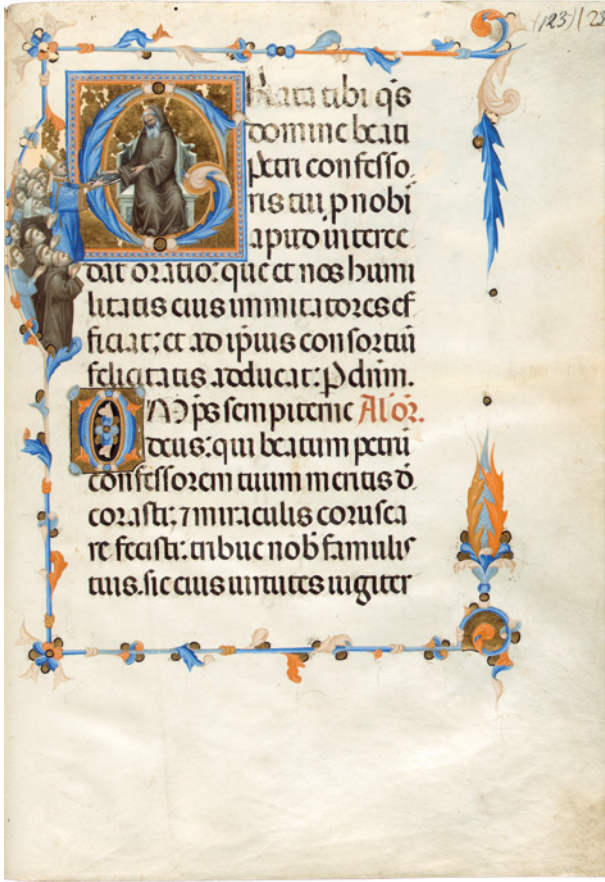 (123) 123
Grata tibi q̄s
domine beati
petri confesso
ris tui p nobi
apud interce
dat oratio: que et nos humi
litatis eius immitatores ef
ficiat: et ad ip̄ius consortiū
felicitatis adducat: P dn̄m.
OM̄ps sempiterne Al' or̄.
deus: qui beatum petrū
confessorem tuum meritis d̄
corasti: ⁊ miraculis corusca
re fecisti: tribue nob̄ famulis
tuis. sic eius uirtutes iugiter